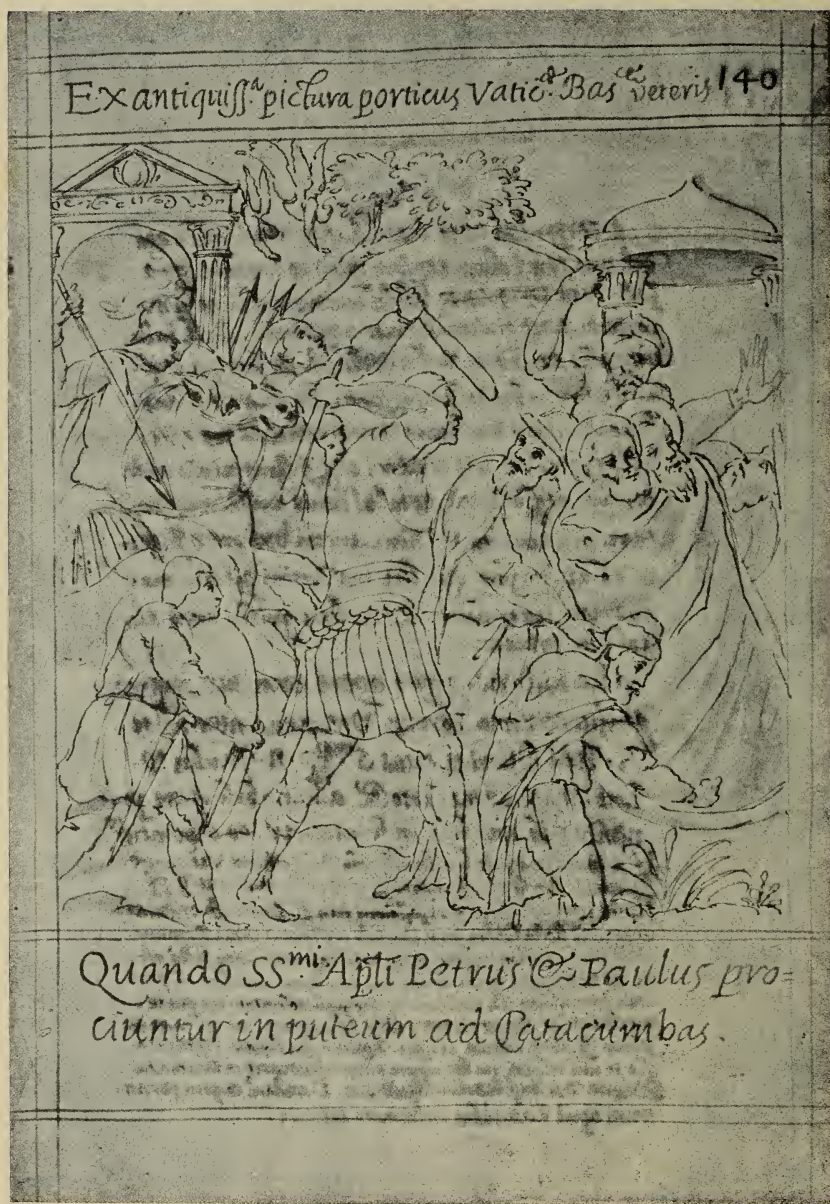 Ex antiquiss.ᵃ pictura porticus Vatic.ᵉ Basᶜᵉ veteris 140
Quando SSᵐⁱ Apl̃i Petrus & Paulus pro=
ciuntur in puteum ad Catacumbas.